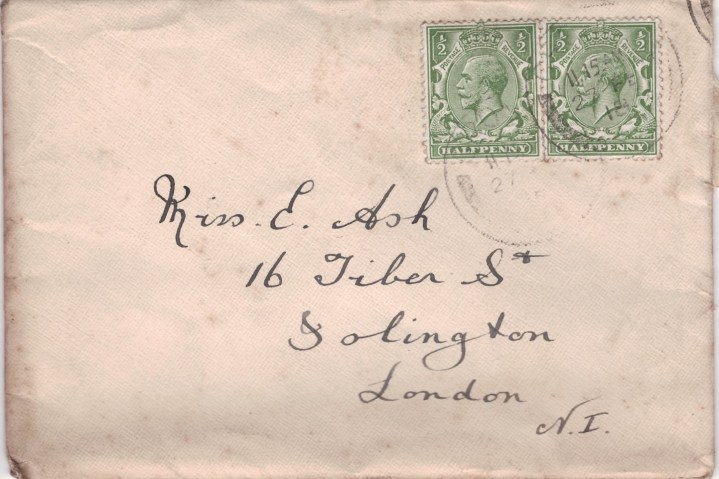 ½ POSTAGE REVENUE ½
HALFPENNY
½ POSTAGE REVENUE ½
HALFPENNY
11.15 AM
27
11.
27
Miss. E. Ash
16 Tiber St
Islington
London
N.I.